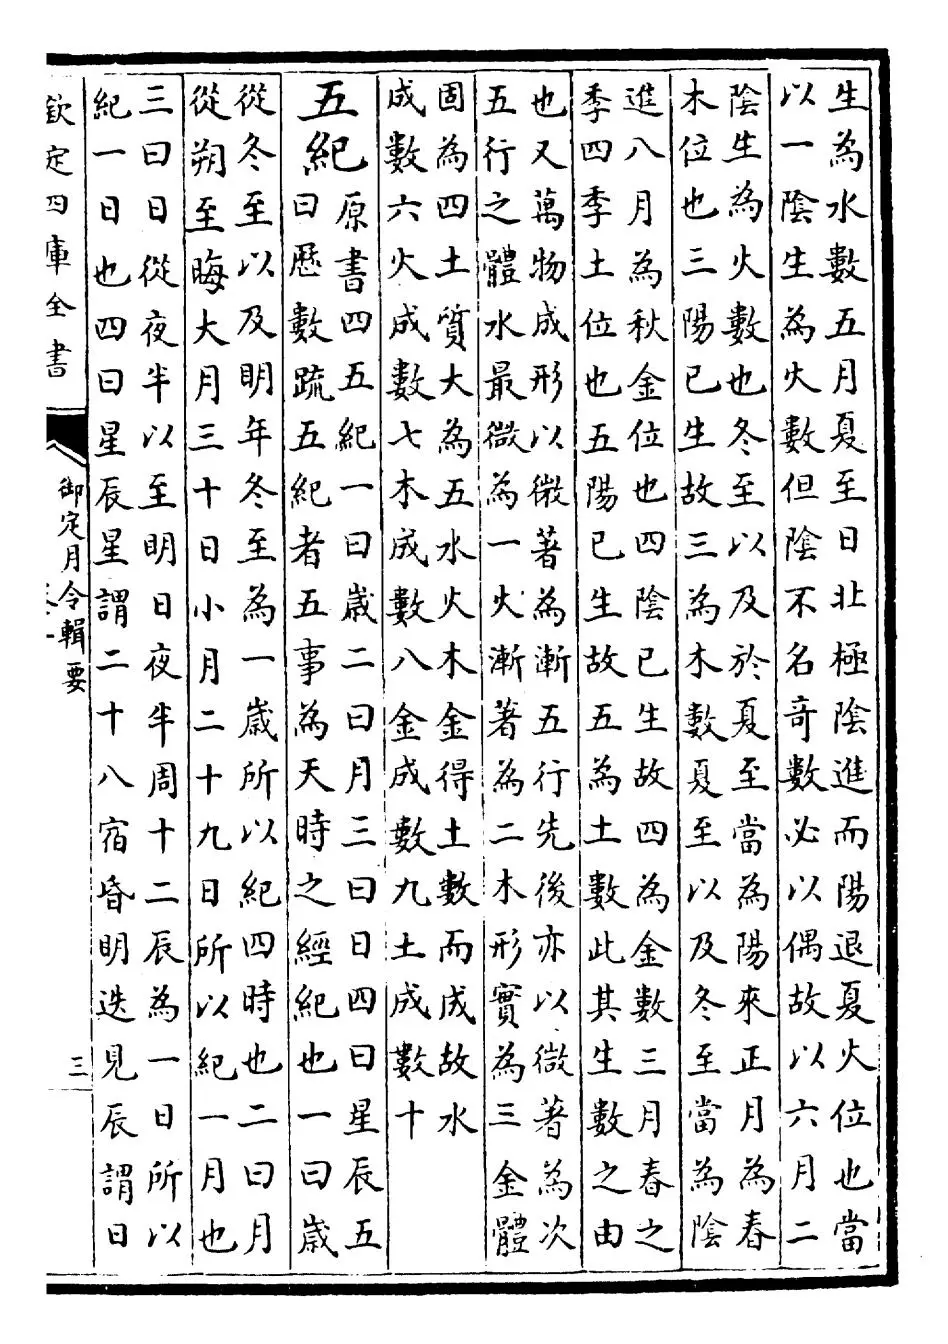 生為水數五月夏至日北極陰進而陽退夏火位也當
以一陰生為火數但陰不名奇數必以偶故以六月二
陰生為火數也冬至以及於夏至當為陽來正月為春
木位也三陽已生故三為木數夏至以及冬至當為陰
進八月為秋金位也四陰已生故四為金數三月春之
季四季土位也五陽已生故五為土數此其生數之由
也又萬物成形以微著為漸五行先後亦以微著為次
五行之體水最微為一火漸著為二木形實為三金體
固為四土質大為五水火木金得土數而成故水
成數六火成數七木成數八金成數九土成數十
五紀原書四五紀一曰歲二曰月三曰日四曰星辰五
曰歷數疏五紀者五事為天時之經紀也一曰歲
從冬至以及明年冬至為一歲所以紀四時也二曰月
從朔至晦大月三十日小月二十九日所以紀一月也
三曰日從夜半以至明日夜半周十二辰為一日所以
紀一日也四曰星辰星謂二十八宿昏明迭見辰謂日
欽定四庫全書
御定月令輯要
三